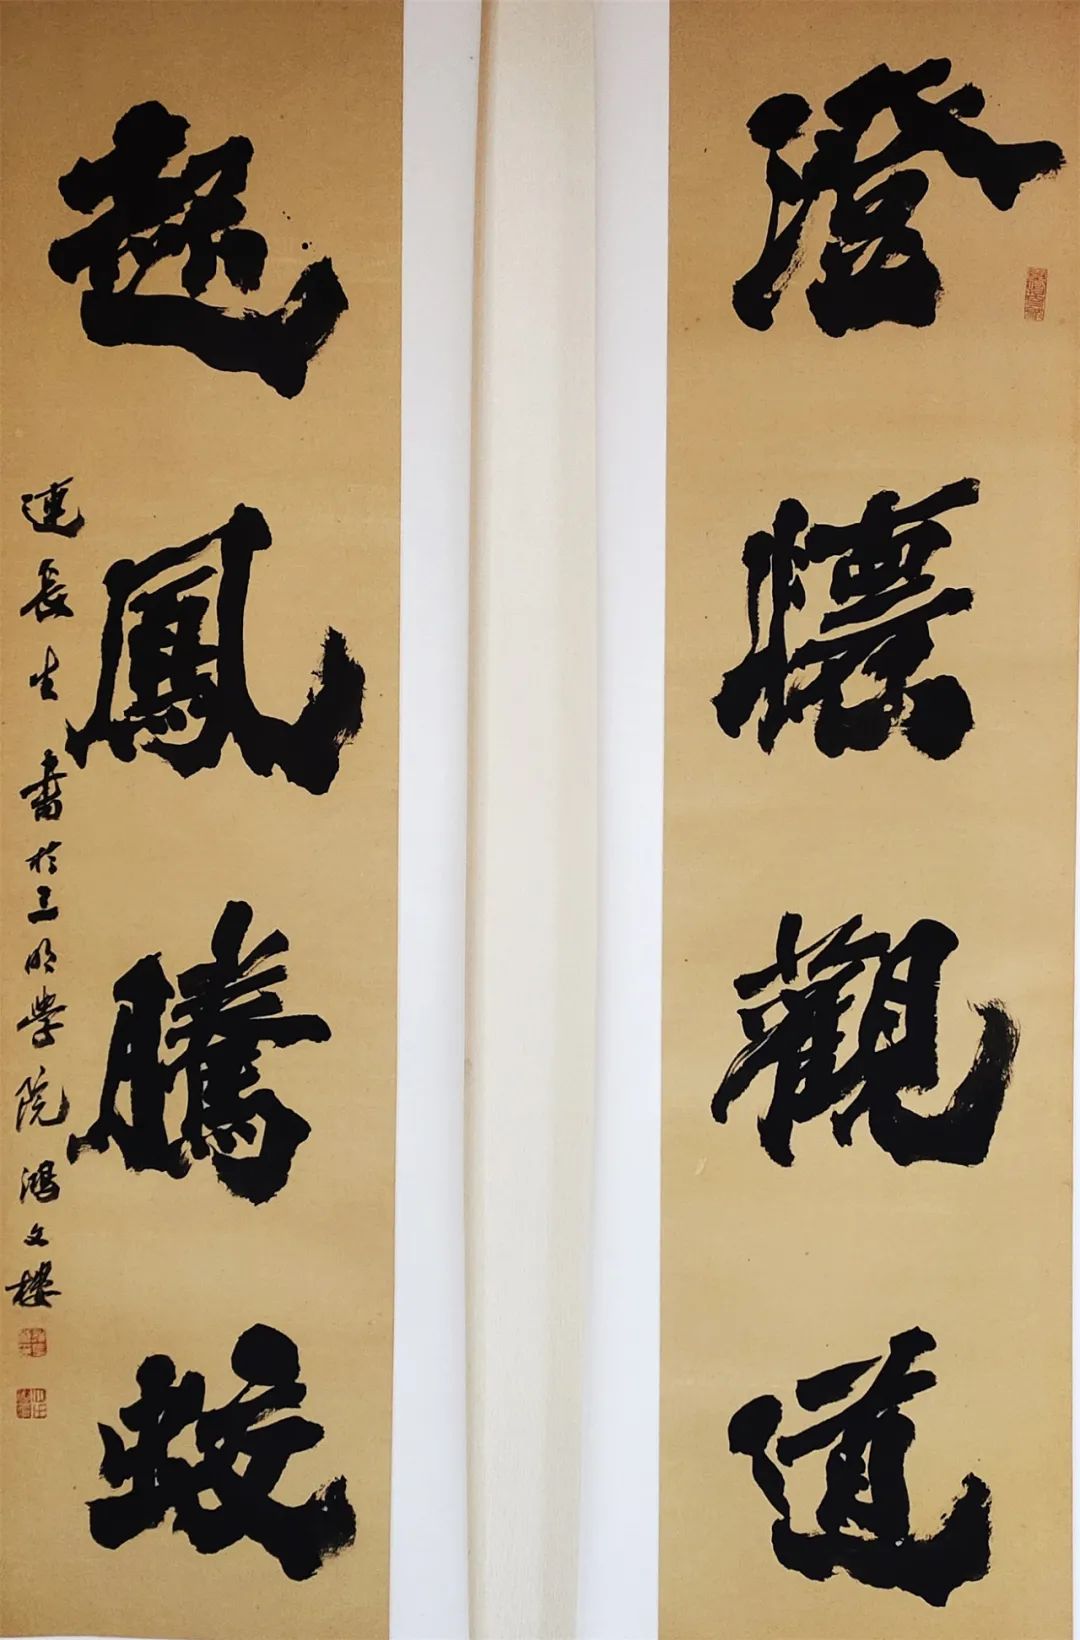 澄懷觀道
起鳳騰蛟
連長生書於三明學院鴻文樓